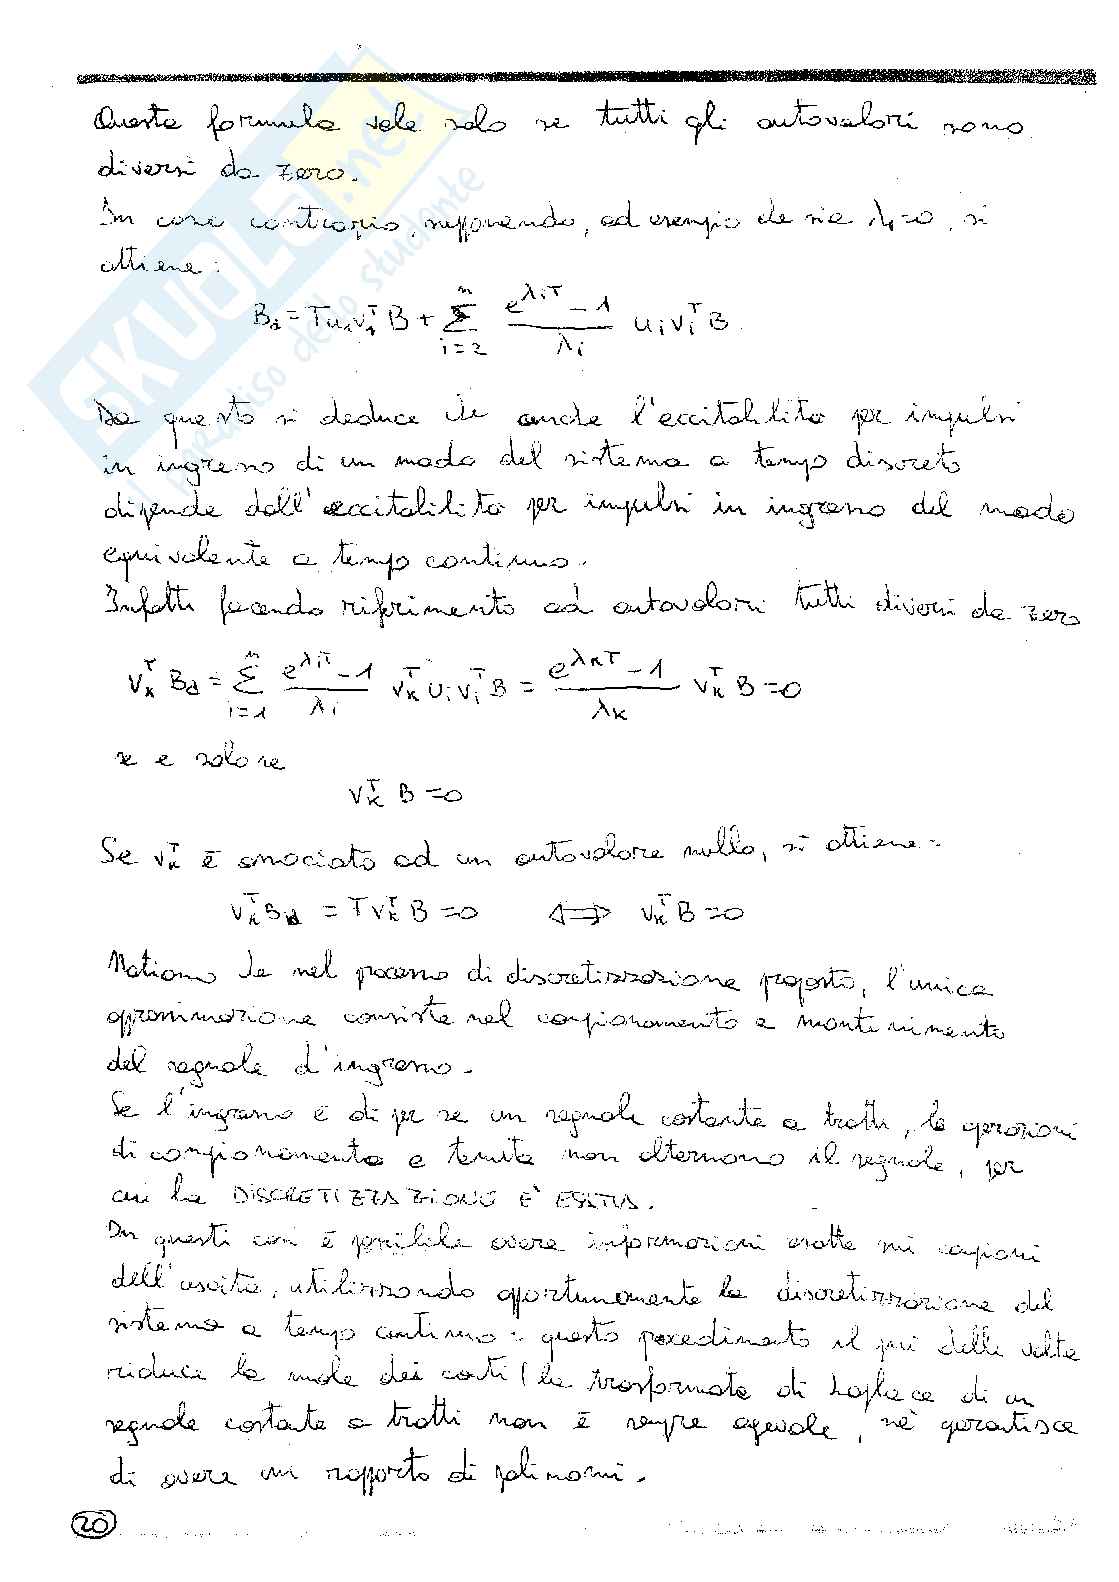 Questa formula vale solo se tutti gli autovalori sono
diversi da zero.
In caso contrario, supponendo, ad esempio che sia λ₁=0, si
ottiene:
B_d = T u₁v₁ᵀ B + Σ_{i=2}^{n} (e^{λᵢT} - 1)/λᵢ uᵢvᵢᵀ B.
Da questo si deduce che anche l'eccitabilità per impulsi
in ingresso di un modo del sistema a tempo discreto
dipende dall'eccitabilità per impulsi in ingresso del modo
equivalente a tempo continuo.
Infatti facendo riferimento ad autovalori tutti diversi da zero
v_kᵀ B_d = Σ_{i=1}^{n} (e^{λᵢT} - 1)/λᵢ v_kᵀ uᵢ vᵢᵀ B = (e^{λ_kT} - 1)/λ_k v_kᵀ B = 0
se e solo se
v_kᵀ B = 0
Se v_kᵀ è associato ad un autovalore nullo, si ottiene:
v_kᵀ B_d = T v_kᵀ B = 0 ⟺ v_kᵀ B = 0
Notiamo che nel processo di discretizzazione proposto, l'unica
approssimazione consiste nel campionamento e mantenimento
del segnale d'ingresso.
Se l'ingresso è di per se un segnale costante a tratti, le operazioni
di campionamento e tenuta non alterano il segnale, per
cui la DISCRETIZZAZIONE E' ESATTA.
In questi casi è possibile avere informazioni esatte sui campioni
dell'uscita, utilizzando opportunamente la discretizzazione del
sistema a tempo continuo: questo procedimento il più delle volte
riduce la mole dei conti (la trasformata di Laplace di un
segnale costante a tratti non è sempre agevole, nè garantisce
di avere un rapporto di polinomi.
20
SKUOLA.net
il paradiso dello studente